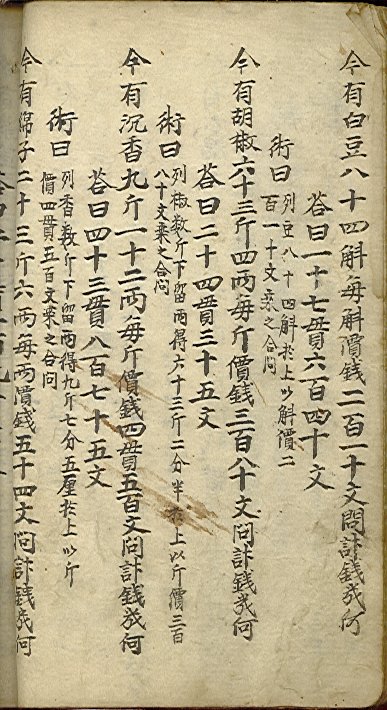 今有白豆八十四斛每斛價錢二百一十文問計錢幾何
荅曰一十七貫六百四十文
術曰
列豆八十四斛於上以斛價二
百一十文乗之合問
今有胡椒六十三斤四两每斤價錢三百八十文問計錢幾何
荅曰二十四貫三十五文
術曰
列椒数斤下留两得六十三斤二分半於上以斤價三百
八十文乗之合問
今有沉香九斤一十二两每斤價錢四貫五百文問計錢幾何
荅曰四十三貫八百七十五文
術曰
列香数斤下留两得九斤七分五厘於上以斤
價四貫五百文乗之合問
今有綿子二十三斤六两每两價錢五十四文問計錢幾何